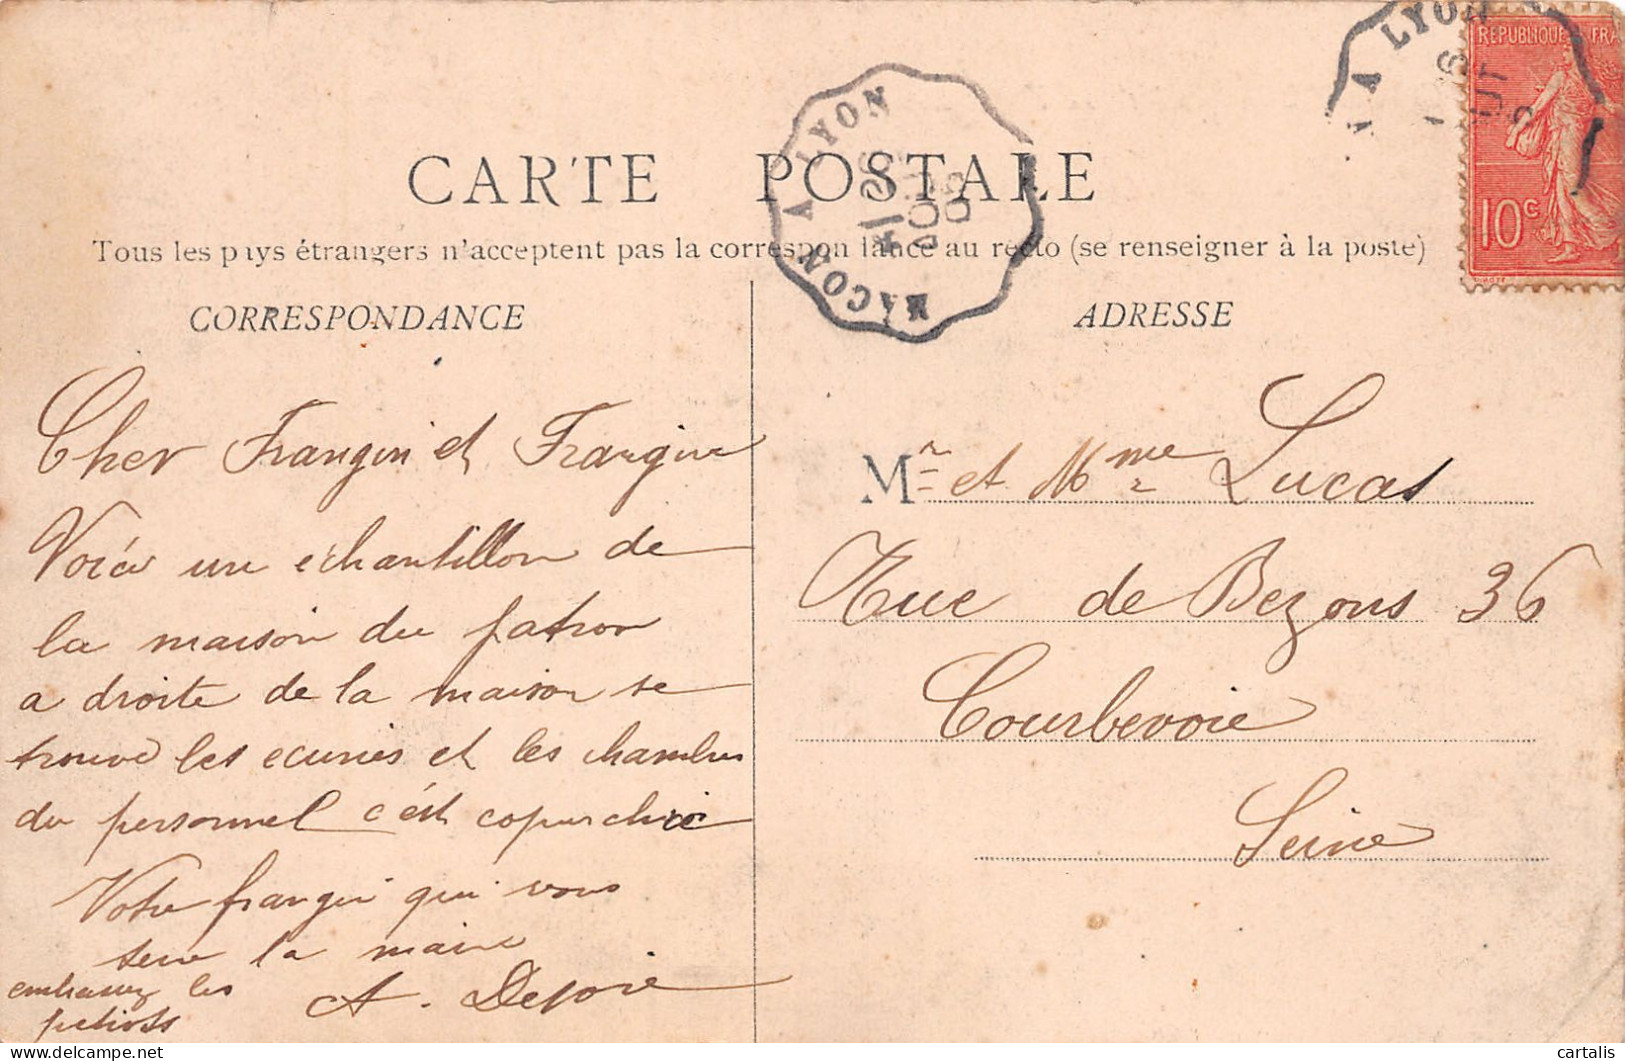 CARTE POSTALE
Tous les pays étrangers n'acceptent pas la correspondance au recto (se renseigner à la poste)
CORRESPONDANCE
ADRESSE
MACON A LYON
A LYON
REPUBLIQUE FRA
10c
Cher Frangin et Frangine
Voici un echantillon de
la maison du patron
a droite de la maison se
trouve les ecuries et les chambres
du personnel c'est copurchic
Votre frangin qui vous
serre la main
embrassez les
petiots
A.
Mr et Mme Lucas
Rue de Bezons 36
Courbevoie
Seine
cartalis